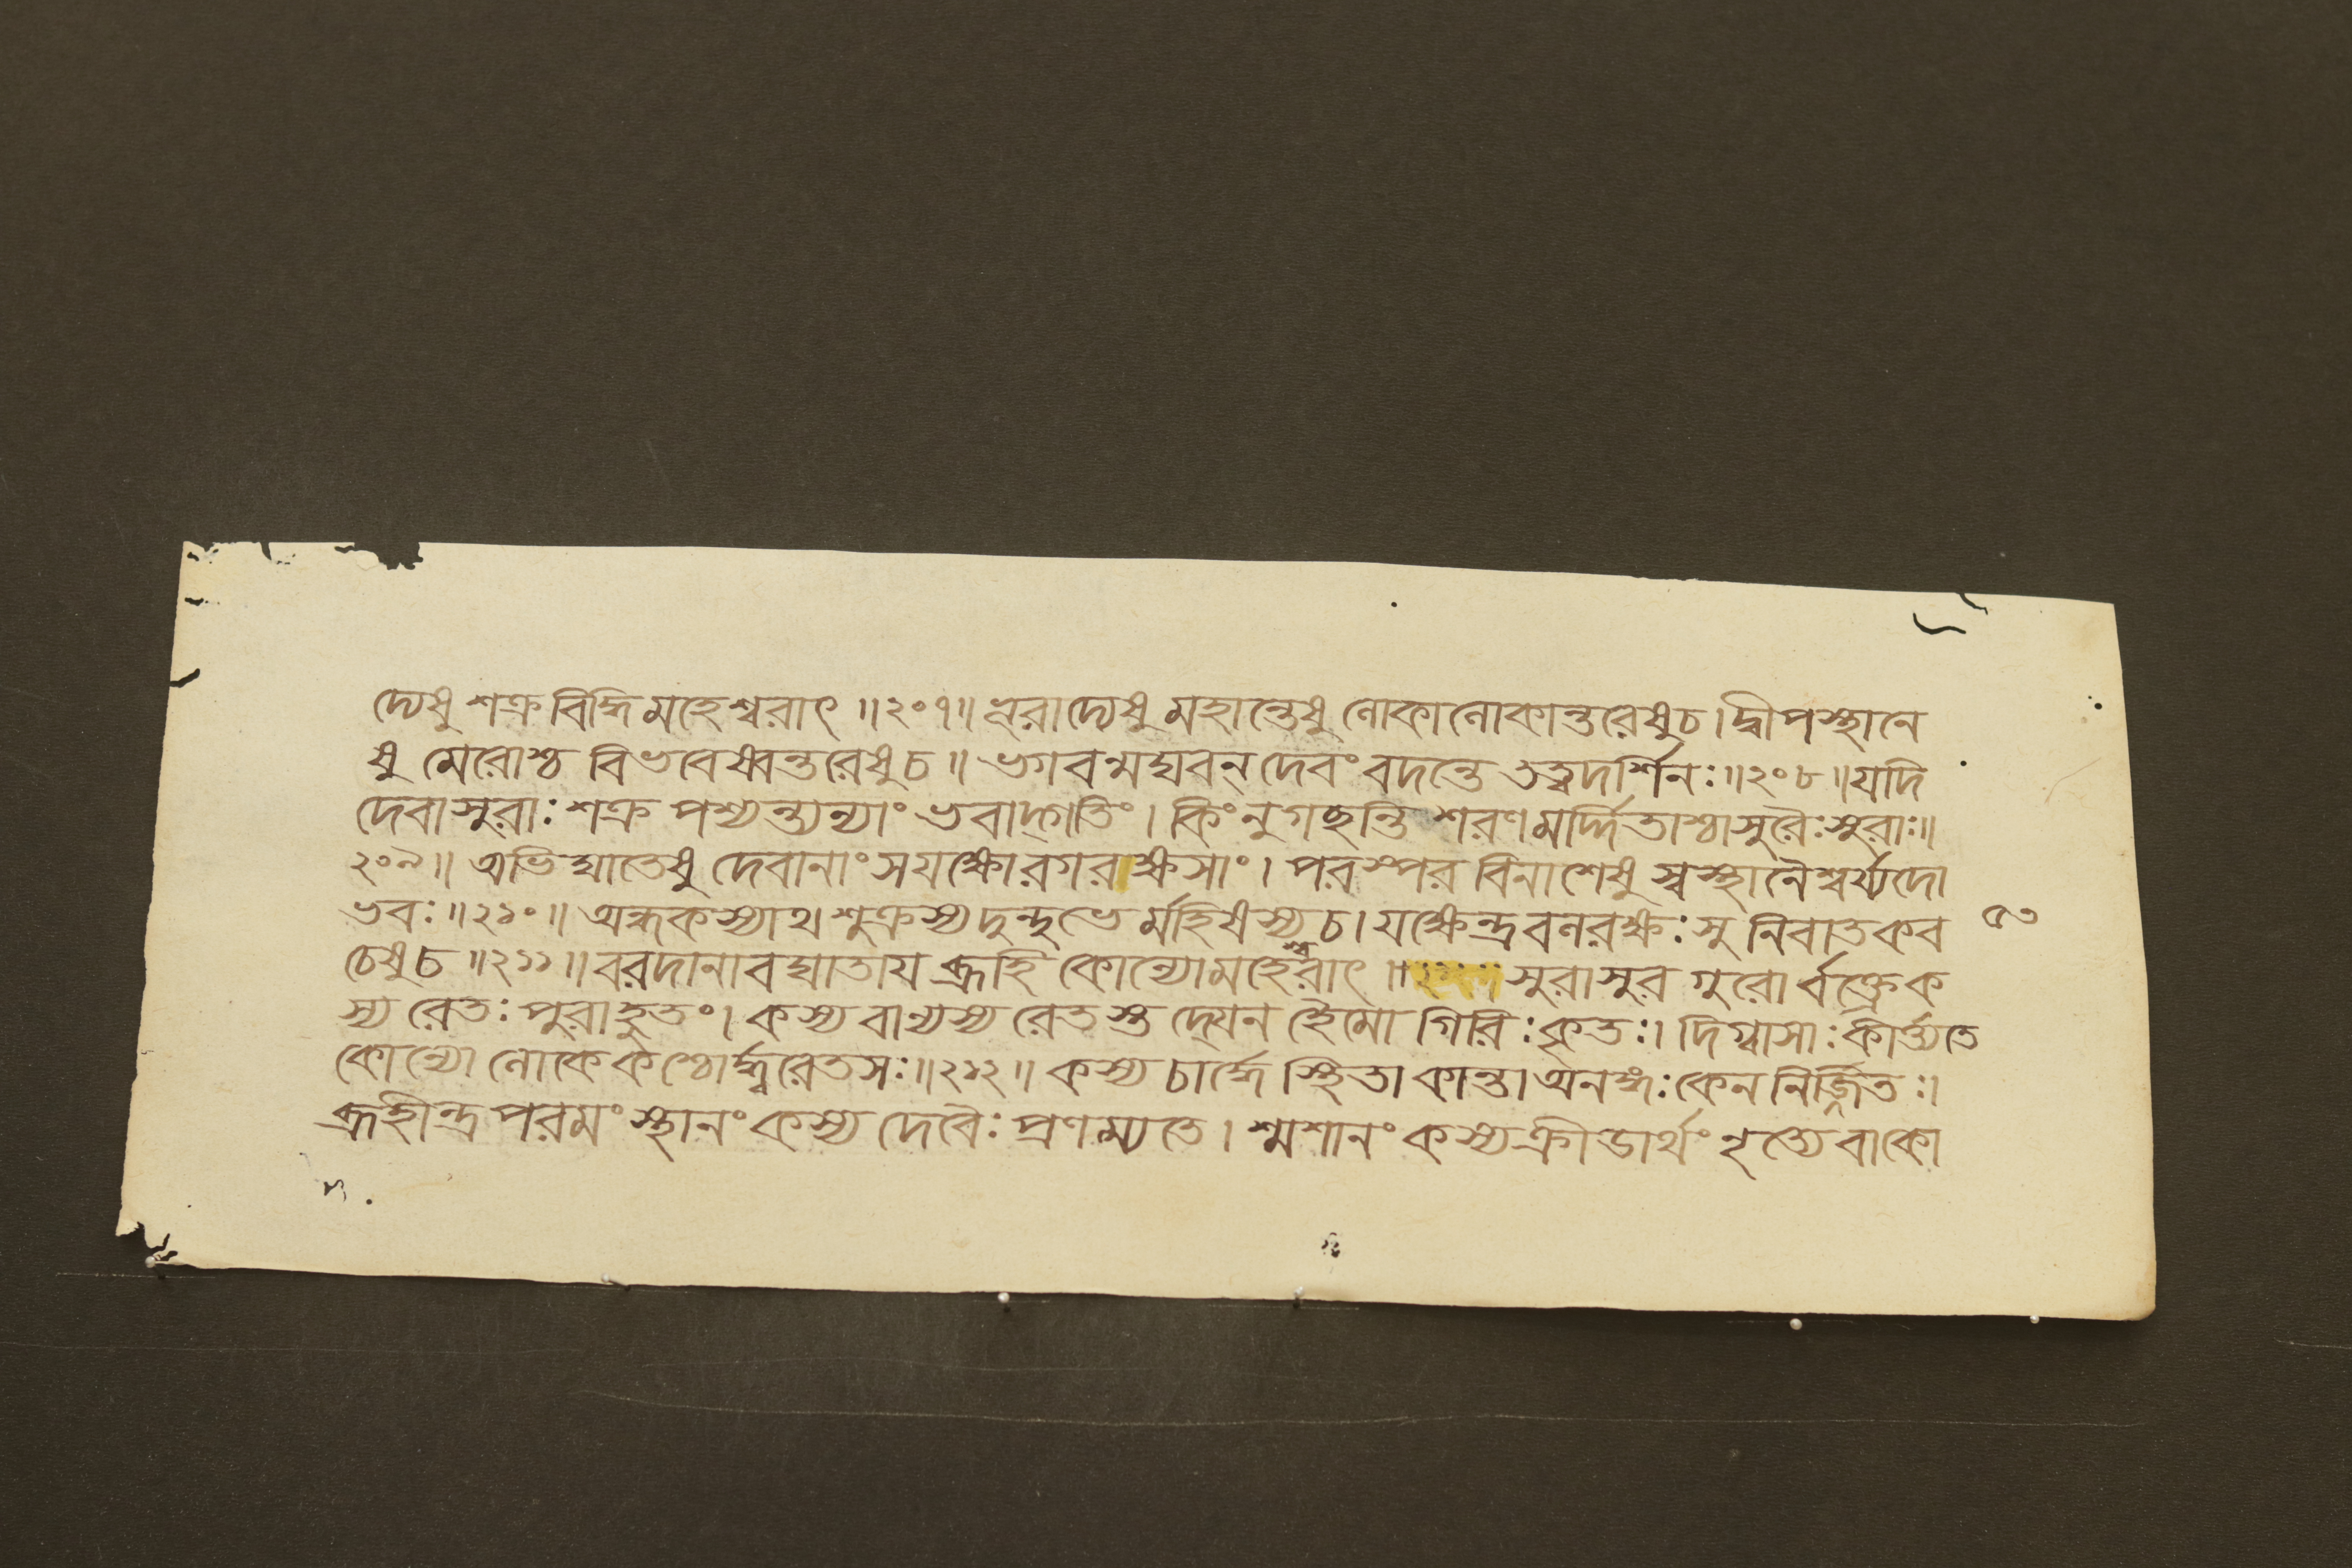 দ্যেষু শক্র বিদ্ধি মহেশ্বরাৎ ॥২০৭॥ ধ্রুরাদ্যেষু মহান্তেষু লোকালোকান্তরেষু চ। দ্বীপস্থানে
ষু মেরোশ্চ বিভবেষ্বন্তরেষু চ॥ ভগবন্মঘবন্ দেবং বদন্তে তত্ত্বদর্শিনঃ॥২০৮॥যদি
দেবাসুরাঃ শক্র পশ্যন্ত্যন্যাং ভবাদ্গতিং। কিংনু গছন্তি শরণমর্দ্দিতাশ্চাসুরৈঃ সুরাঃ॥
২০৯॥ অভিঘাতেষু দেবানাং সযক্ষোরগরাক্ষসাং। পরস্পর বিনাশেষু স্বস্থানৈশ্বর্য্যদো
ভবঃ॥২১০॥ অন্ধকস্যাথ শুক্রস্য দুন্দুভের্মহিষস্য চ। যক্ষেন্দ্রবলরক্ষঃসু নিবাতকব
চেষু চ ॥২১১॥ বরদানাবঘাতায় ব্রূহি কোন্যো মহেশ্বরাৎ ॥ সুরাসুর গুরোর্বক্ত্রে ক
স্য রেতঃ পুরাহুতং। কস্য বান্যস্য রেতস্তদ্যেন হৈমো গিরিঃ কৃতঃ। দিগ্বাসাঃ কীর্ত্ত্যতে
কোন্যো লোকে কশ্চোর্দ্ধ্বরেতসঃ॥২১২॥ কস্য চার্দ্ধে স্থিতা কান্তা অনঙ্গঃ কেন নির্জ্জিতঃ।
ব্রূহীন্দ্র পরমং স্থানং কস্য দেবৈঃ প্রণম্যতে। শ্মশানং কস্য ক্রীডার্থং নৃত্যে বা কো
৫৩